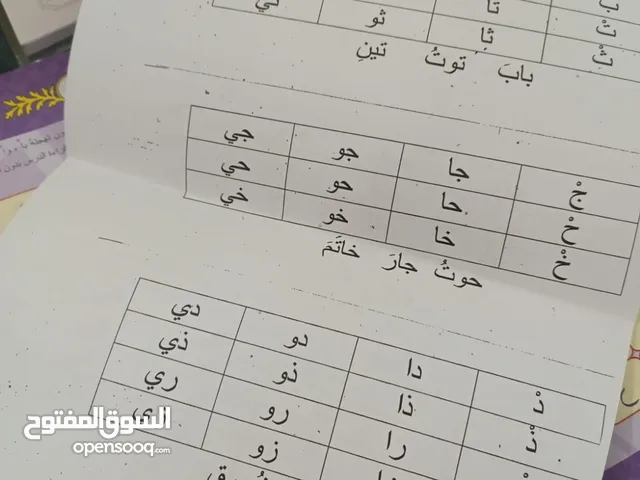 بْ تا
تْ ثا ثو
ثْ
بابَ توتُ تينِ
جْ جا جو جي
حْ حا حو حي
خْ خا خو خي
حوتُ جارَ خاتَمَ
دْ دا دو دي
ذْ ذا ذو ذي
را رو ري
زو
السوق المفتوح
opensooq.com